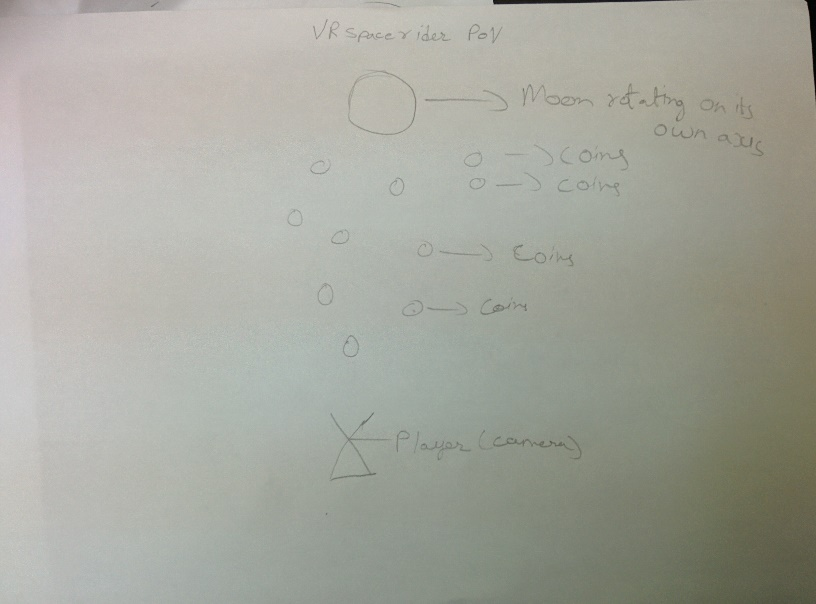 VR spacerider PoV
Moon rotating on its
own axis
Coins
Coins
Coins
Coins
Player (camera)